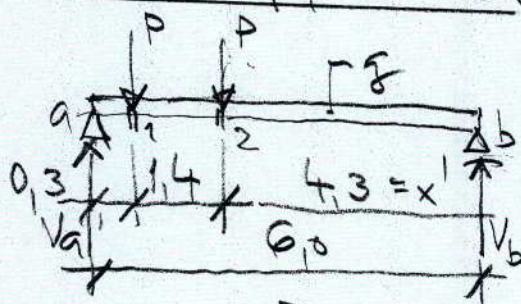 P P
g
a 1 2 b
0,3 1,4 4,3 = x'
Va Vb
6,0